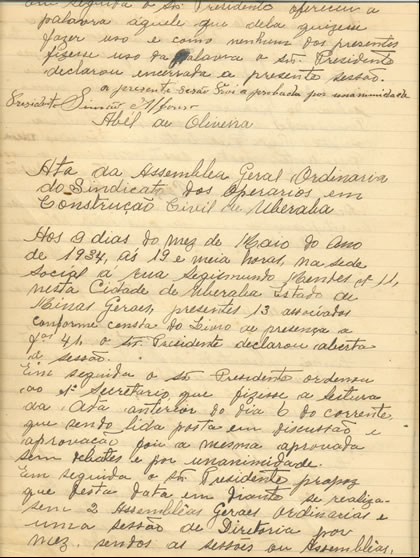 em seguida o Sr. Presidente offereceu a
palavra aquele que dela quizesse
fazer uso e como nenhum dos presentes
fizesse uso da palavra o Sr. Presidente
declarou encerrada a presente sessão.
a presente Sesão Foi a probada por unanimidade
Presidente Affonso
Abil de Oliveira
Ata da Assemblea Geral Ordinaria
do Sindicato dos Operarios em
Construção Civil de Uberaba
Aos 9 dias do mez de Maio do Ano
de 1934, ás 19 e meia horas, na séde
social á rua Segismundo Mendes nº 11,
nesta Cidade de Uberaba Estado de
Minas Geraes, presentes 13 associados
conforme consta do Livro de presença a
41 o Sr. Presidente declarou aberta
a sessão.
Em seguida o Sr. Presidente ordenou
ao 1º Secretario que fizesse a leitura
da Ata anterior do dia 6 do corrente,
que sendo lida posta em discussão e
aprovação foi a mesma aprovada
sem debates e por unanimidade.
Em seguida o Sr. Presidente propoz
que desta data em diante se realiza-
sem 2 Assembleas Geraes ordinarias e
uma sessão de Diretoria por
mez, sendos as sessões ou Assembleas,